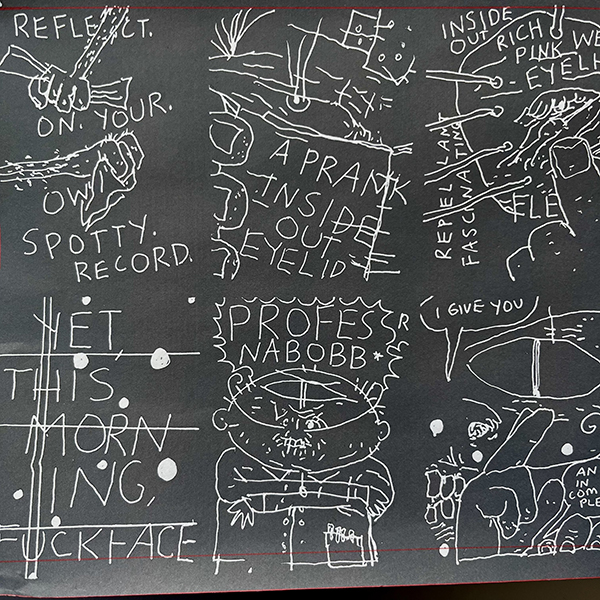 REFLECT.
ON. YOUR.
OW
SPOTTY.
RECORD.
A PRANK
INSIDE
OUT
EYELID
INSIDE
OUT RICH
PINK WE
EYELI
REPELLANT
FASCINATING
ELE
YET,
THIS
MORN
ING,
FUCKFACE
PROFES
R
NABOBB*
I GIVE YOU
G
AN
IN
COM
PLE